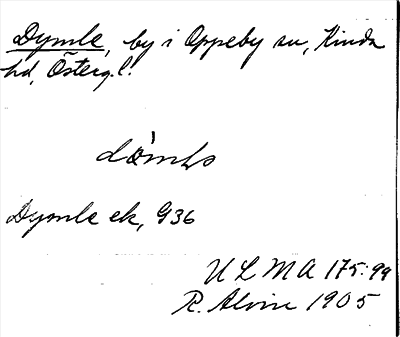 Dymle, by i Oppeby sn, Kinda
hd, Österg.l.
Dymle ek, G36
ULMA 175:99
R. Alvin 1905